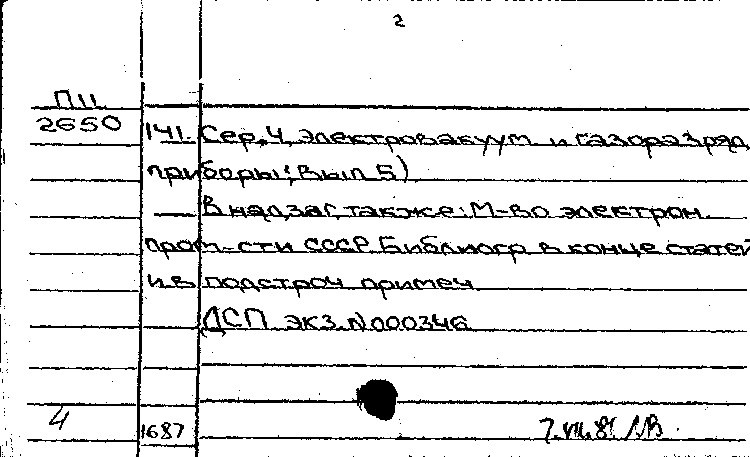 2
П11
2650
141. Сер. 4, электровакуум. и газоразряд.
приборы; Вып 5)
— В надзаг. также: М-во электрон.
пром-сти СССР. Библиогр в конце статей
и в подстроч примеч
ДСП экз. N000346
4
1687
7.VII.81